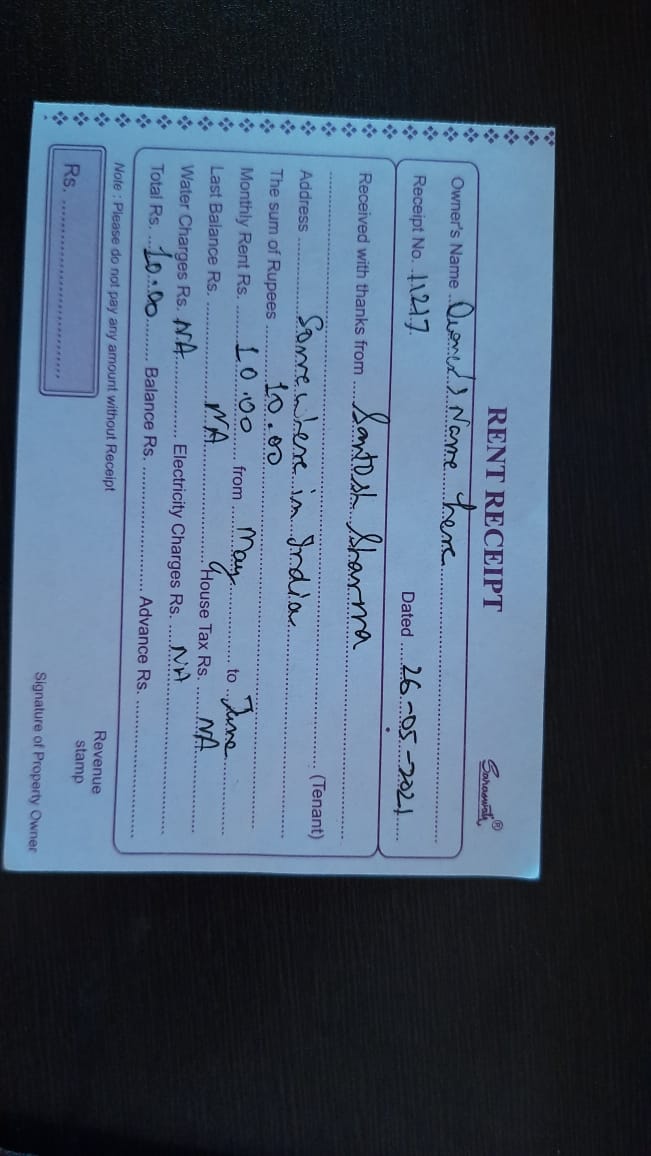 RENT RECEIPT
Saraswati®
Owner's Name Owner's Name here
Receipt No. 11217 Dated 26-05-2021
Received with thanks from Santosh Sharma
(Tenant)
Address Somewhere in India
The sum of Rupees 10.00
Monthly Rent Rs. 10.00 from May to June
Last Balance Rs. NA House Tax Rs. NA
Water Charges Rs. NA Electricity Charges Rs. NA
Total Rs. 10.00 Balance Rs. Advance Rs.
Note : Please do not pay any amount without Receipt
Revenue
stamp
Rs.
Signature of Property Owner